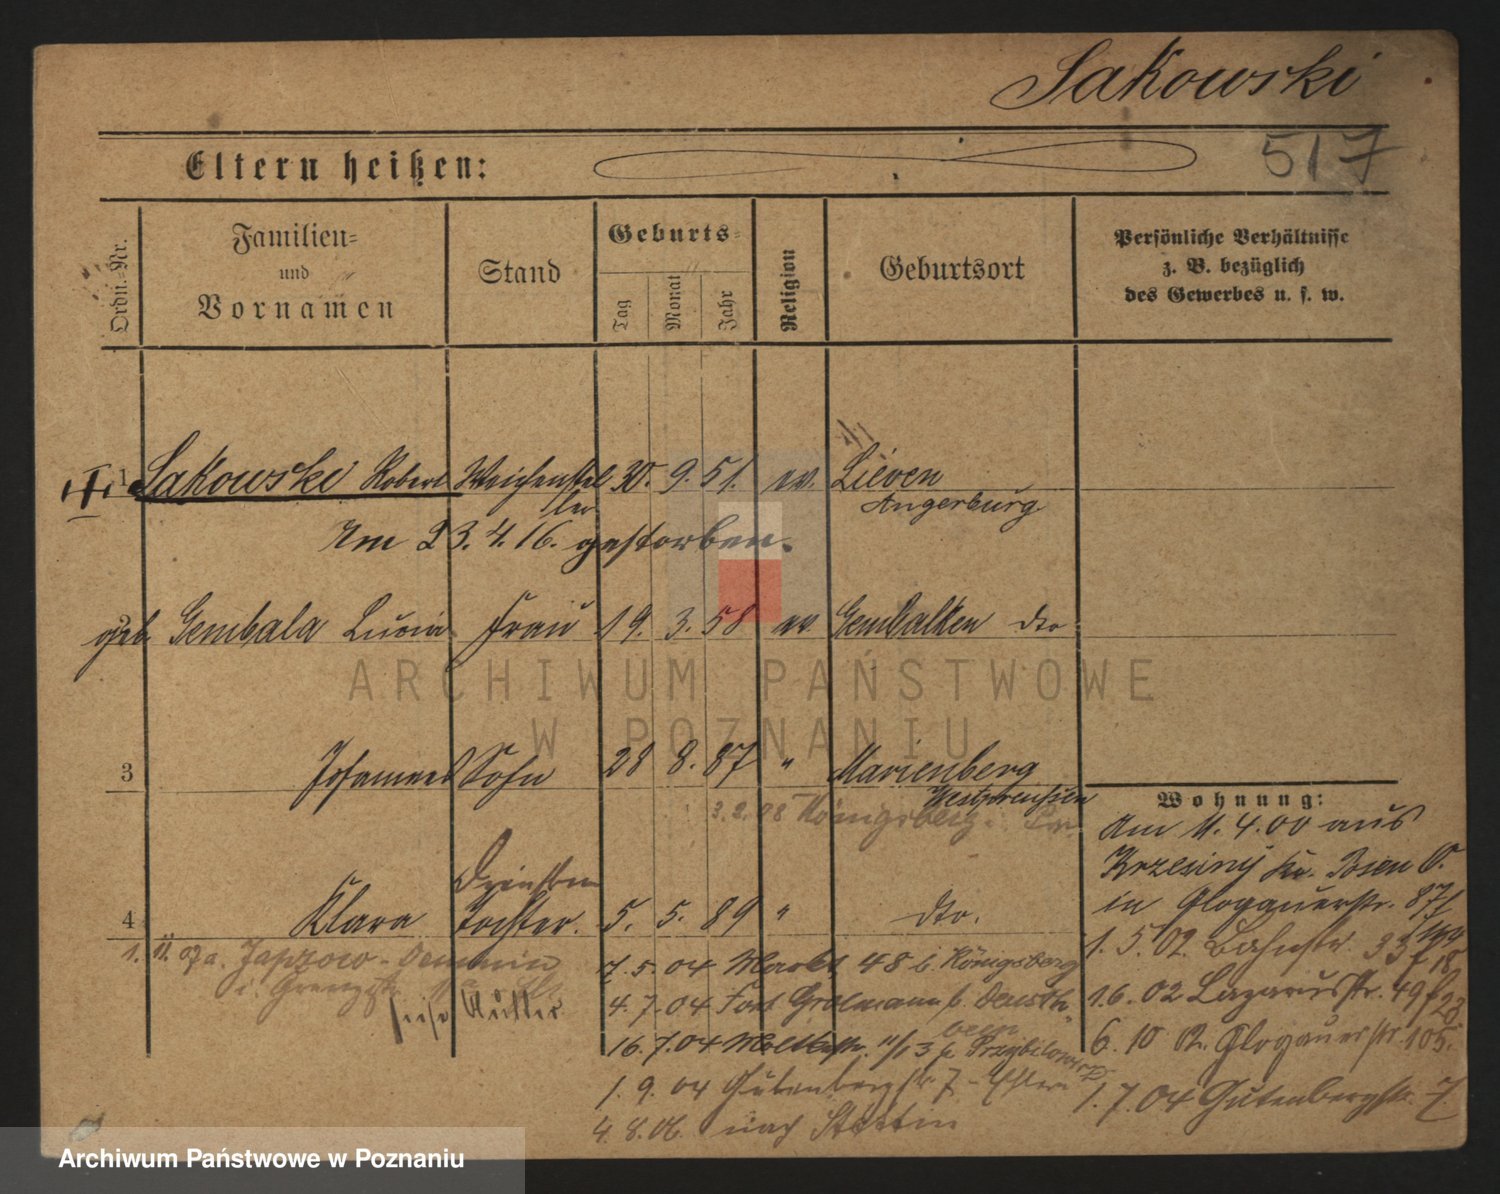 Sakowski
517
Eltern heißen:
Ordn.-Nr.
Familien-
und
Vornamen
Stand
Geburts-
Tag
Monat
Jahr
Religion
Geburtsort
Persönliche Verhältnisse
z. B. bezüglich
des Gewerbes u. s. w.
1 Sakowski Robert Weichenstel 30. 9. 51. ev. Lieven
ler Angerburg
Am 23. 4. 16. gestorben.
2 geb. Gembala Lucia Frau 19. 3. 58 ev Gembalken dto
3 Johannes Sohn 28 8. 87 " Marienberg
Westpreussen
3.2.08 Königsberg i. Pr.
Wohnung:
Am 11. 4. 00 aus
Krzesiny Kr. Posen O.
in Glogauerstr. 87/
Dienstm
4 Klara Tochter. 5. 5. 89 " dto.
1. 5. 02. Bahnstr. 33
7. 5. 04 Markt 48 b. Königsberg
1. 6. 02 Lazarusstr. 49
i. Grenzstr.
siehe Mutter
4. 7. 04 Fort Grolmann b.
16. 7. 04 Moltkestr. 11/13 b. Przybilowski
6. 10 02. Glogauerstr. 105.
1. 9. 04 Gutenbergstr. 7 - Eltern
1. 7. 04 Gutenbergstr. 7
4. 8. 06. nach Stettin
ARCHIWUM PAŃSTWOWE
W POZNANIU
Archiwum Państwowe w Poznaniu